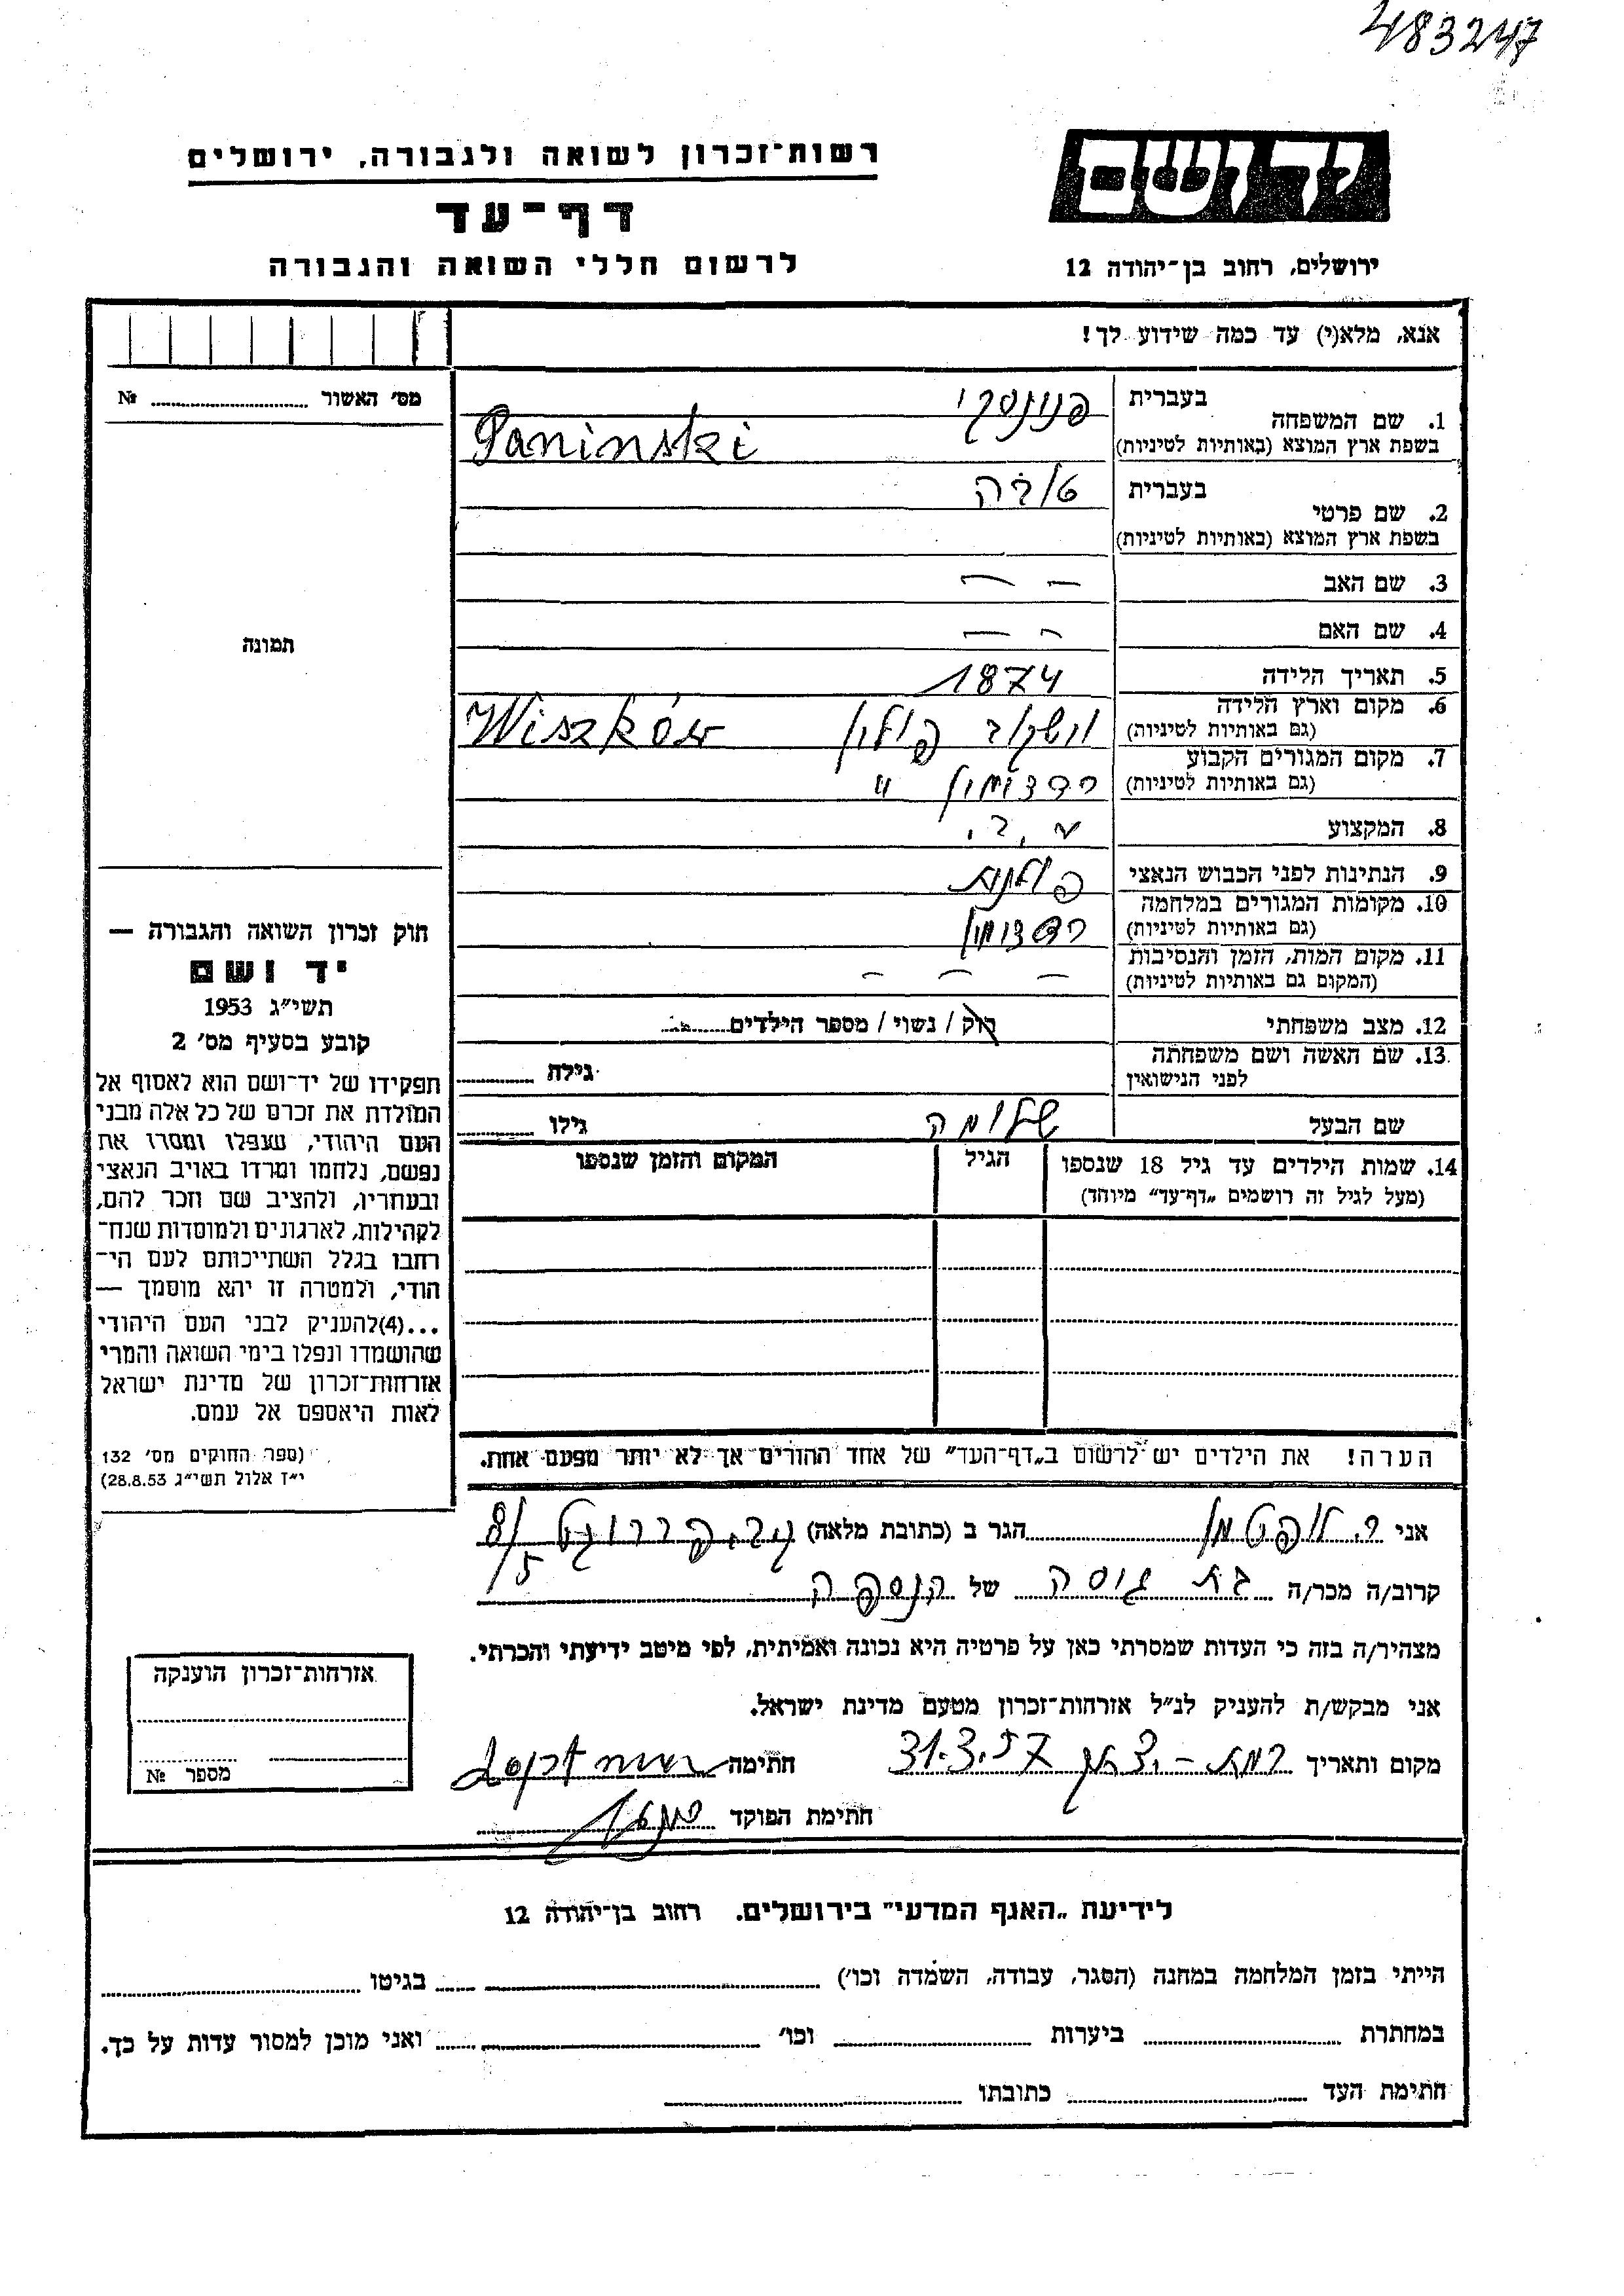 483247
יד ושם
ירושלים, רחוב בן־יהודה 12
רשות־זכרון לשואה ולגבורה, ירושלים
דף־עד
לרשום חללי השואה והגבורה
אנא, מלא(י) עד כמה שידוע לך!
מס׳ האשור № 
תמונה
חוק זכרון השואה והגבורה —
יד ושם
תשי״ג 1953
קובע בסעיף מס׳ 2
תפקידו של יד־ושם הוא לאסוף אל
המולדת את זכרם של כל אלה מבני
העם היהודי, שנפלו ומסרו את
נפשם, נלחמו ומרדו באויב הנאצי
ובעוזריו, ולהציב שם וזכר להם,
לקהילות, לארגונים ולמוסדות שנח־
רחבו בגלל השתייכותם לעם הי־
הודי, ולמטרה זו יהא מוסמך —
...(4)להעניק לבני העם היהודי
שהושמדו ונפלו בימי השואה והמרי
אזרחות־זכרון של מדינת ישראל
לאות היאספם אל עמם.
(ספר החוקים מס׳ 132
י״ז אלול תשי״ג 28.8.53)
1. שם המשפחה בעברית פנינסקי
בשפת ארץ המוצא (באותיות לטיניות) Paninski
2. שם פרטי בעברית
בשפת ארץ המוצא (באותיות לטיניות)
3. שם האב — —
4. שם האם — —
5. תאריך הלידה 1874
6. מקום וארץ הלידה (גם באותיות לטיניות) וישקוב פולין Wiszków
7. מקום המגורים הקבוע (גם באותיות לטיניות) רדצימין "
8. המקצוע
9. הנתינות לפני הכבוש הנאצי פולנית
10. מקומות המגורים במלחמה (גם באותיות לטיניות) רדצימין
11. מקום המות, הזמן והנסיבות (המקום גם באותיות לטיניות) — — —
12. מצב משפחתי רוק / נשוי / מספר הילדים
13. שם האשה ושם משפחתה לפני הנישואין גילה
שם הבעל שלומה גילו
14. שמות הילדים עד גיל 18 שנספו (מעל לגיל זה רושמים „דף־עד״ מיוחד) הגיל המקום והזמן שנספו
הערה! את הילדים יש לרשום ב„דף־העד״ של אחד ההורים אך לא יותר מפעם אחת.
אני ר. לופטמן הגר ב (כתובת מלאה) 8/5
קרוב/ה מכר/ה בת גיסה של הנספה
מצהיר/ה בזה כי העדות שמסרתי כאן על פרטיה היא נכונה ואמיתית, לפי מיטב ידיעתי והכרתי.
אני מבקש/ת להעניק לנ״ל אזרחות־זכרון מטעם מדינת ישראל.
מקום ותאריך רמת-יצחק 31.3.57 חתימה
חתימת הפוקד
אזרחות־זכרון הוענקה
מספר №
לידיעת „האגף המדעי״ בירושלים. רחוב בן־יהודה 12
הייתי בזמן המלחמה במחנה (הסגר, עבודה, השמדה וכו׳) בגיטו
במחתרת ביערות וכו׳ ואני מוכן למסור עדות על כך.
חתימת העד כתובתו